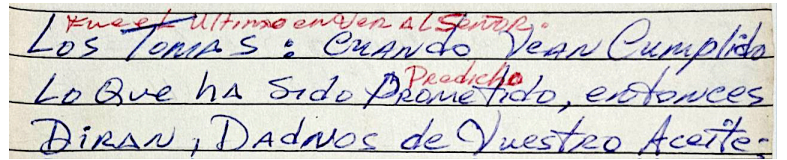 Fue el Ultimo en Ver Al Señor.
Los Tomas: Cuando Vean Cumplido
Predicho
Lo Que ha Sido Prometido, entonces
Diran, Dadnos de Vuestro Aceite.